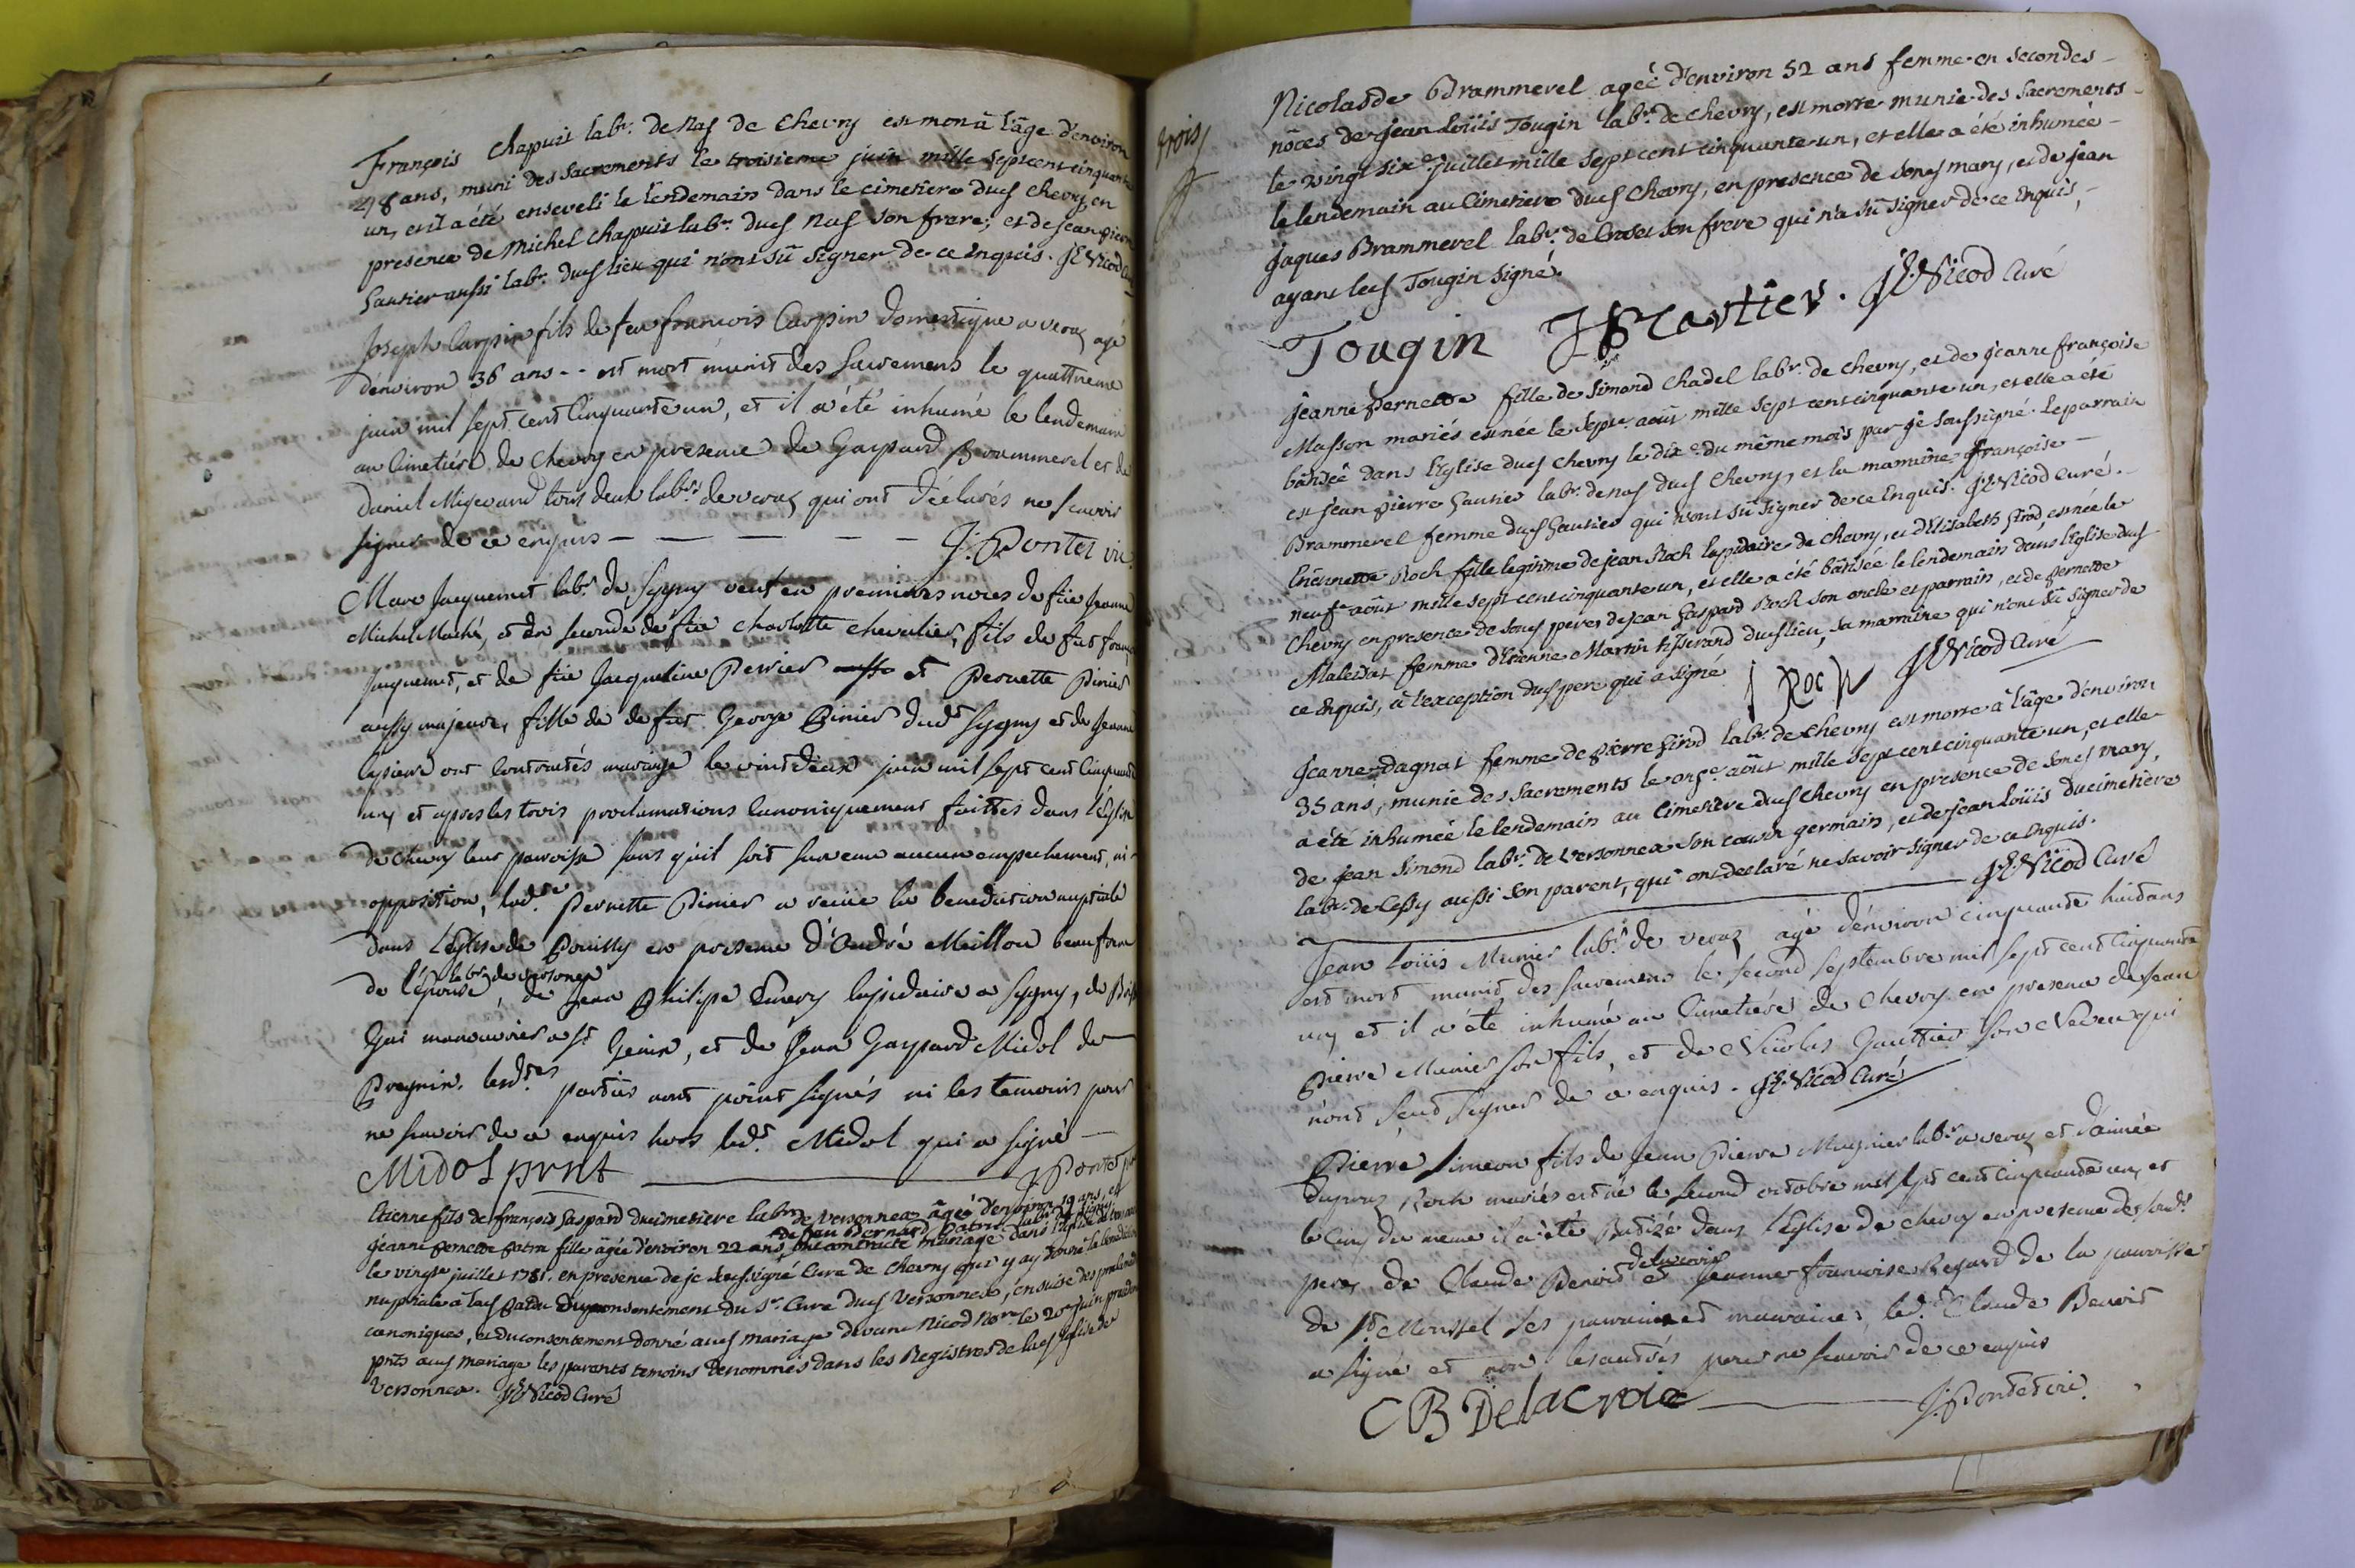 François Chapuis lab.r de Naf de Chevry est mort à l'âge d'environ
48 ans, muni des Sacrements le troisieme juin mille sept cent cinquante
un, et il a été enseveli le lendemain dans le cimetiere dud Chevry, en
presence de Michel Chapuis lab.r dud Naf son frere; et de Jean pierre
Gautier aussi lab.r dud lieu qui n'ont sû signer de ce enquis. J. Nicod Curé
Joseph Carpin fils de feu francois Carpin domestique a veraz agé
d'environ 36 ans - - est mort munit des Sacremens le quattrieme
juin mil sept cent Cinquante un, et il a été inhumé le lendemain
au Cimetiére de Chevry en presence de Gaspard Brammerel et de
Daniel Migevand tous deux lab.rs de veraz qui ont déclarés ne scavoir
signer de ce enquis - - - - - J: Pontet vic.
Marc Jacquemet lab.r de Sygny veuf en premieres noces de fue Jeanne
Michel Maché, et de seconde de fue Charlotte Chevalier, fils de fut franç
Jacquemet, et de fue Jacqueline Perrier et Pernette Pinier
aussy majeure, fille de de fut George Pinier dud.t Sygny et de Jeanne
ont Contractés mariage le vint deux juin mil sept cent Cinquante
un, et apres les trois proclamations Canoniquement faittes dans l'Eglise
de Chevry leur paroisse sans qu'il soit survenu aucun empechement, ni
opposition, lad.te Pernette Pinier a reçue la benediction nuptiale
dans l'Eglise de Pouilly en presence d'André Meillou beau frere
lab.r de versonex
de l'épouse, de Jean Philipe Emery lapidaire a Sygny, de
Gai manouvrier a St Genix, et de Jean Gaspard Midol de
Pregnin. lesd.tes parties n'ont point signés ni les temoins pour
ne scavoir de ce enquis hors led.t Midol qui a signé -
Midol prnt J: Pontet
Etienne fils de françois Gaspard Ducimetiere lab.r de Versonnex âgé d'environ 19 ans, et
de feu Bernard Patru lab.r
jeanne pernette Patru fille âgée d'environ 22 ans, ont contracté mariage dans l'Eglise
le vingte juillet 1751. en presence de je soussigné Curé de Chevry qui y ay donné la benediction
nuptiale à lad Patru du consentement du S.r Curé dud Versonnex, ensuite des proclamat
canoniques, et du consentement donné aud mariage devant Nicod No.re le 20e juin
pnts aud mariage les parants temoins denommés dans les Registres de lad Eglise de
Versonnex. J. Nicod Curé
trois
Nicolasde Brammerel agée d'environ 52 ans femme en secondes
nôces de Jean Loüis Tougin lab.r de Chevry, est morte munie des Sacrements
le vingt sixe juillet mille sept cent cinquante un, et elle a été inhumée
le lendemain au Cimetiere dud Chevry, en presence de sond mary, et de jean
jaques Brammerel lab.r de Croset son frere qui n'a sû signer de ce enquis,
ayant led Tougin signé.
Tougin Cartier. J. Nicod Curé
jeanne pernette fille de Simond Chadel lab.r de Chevry, et de jeanne françoise
Masson mariés est née le sept août mille sept cent cinquante un, et elle a été
bâtisée dans l'Eglise dud Chevry le dixe du même mois par je soussigné. Le parrain
est jean pierre Gautier lab.r de naf dud Chevry, et la marraine françoise
Brammerel femme dud Gautier qui n'ont sû signer de ce enquis. J. Nicod Curé.
Etiennette Roch fille legitime de jean Roch lapidaire de Chevry, et d'Elisabeth Girod, est née le
neufe août mille sept cent cinquante un, et elle a été bâtisée le lendemain dans l'Eglise dud
Chevry en presence de soud pere, de jean Gaspard Roch son oncle et parrain, et de pernette
Malendat femme d'Etienne Martin tisserand dud lieu, sa marraine qui n'ont sû signer de
ce enquis, à l'exception dud pere qui a signé J Roch J. Nicod Curé
jeanne Dagnat femme de pierre Girod lab.r de Chevry est morte à l'âge d'environ
35 ans, munie des Sacrements le onze août mille sept cent cinquante un, et elle
a été inhumée le lendemain au Cimetiere dud Chevry en presence de soud mary,
de jean Simond lab.r de Versonnex son cousin germain, et de jean Loüis Ducimetiere
lab.r de Cessy aussi son parent, qui ont declaré ne savoir signer de ce enquis.
J. Nicod Curé
Jean Loüis Munier lab.r de veraz agé d'environ cinquante huit ans
est mort munit des sacremens le second septembre mil sept cent Cinquante
un, et il a été inhumé au Cimetiére de Chevry en presence de Jean
Pierre Munier son fils, et de Nicolas Gauttier son Neveu qui
n'ont seut signer de ce enquis. J. Nicod Curé
Pierre Simeon fils de Jean Pierre Mugnier lab.r a veraz et d'aimée
Roch mariés est né le second octobre mil sept cent Cinquante un, et
le Cinq du meme il a été Batizé dans l'Eglise de Chevry en presence des sund.t
delacroix
pere, de Claude Benoit et Jeanne francoise Regard de la parroisse
de St. Moussel ses parrain et marraine, led.t Claude Benoit
a signé et non les autres pour ne scavoir de ce enquis
C B Delacroix J: Pontet vic.